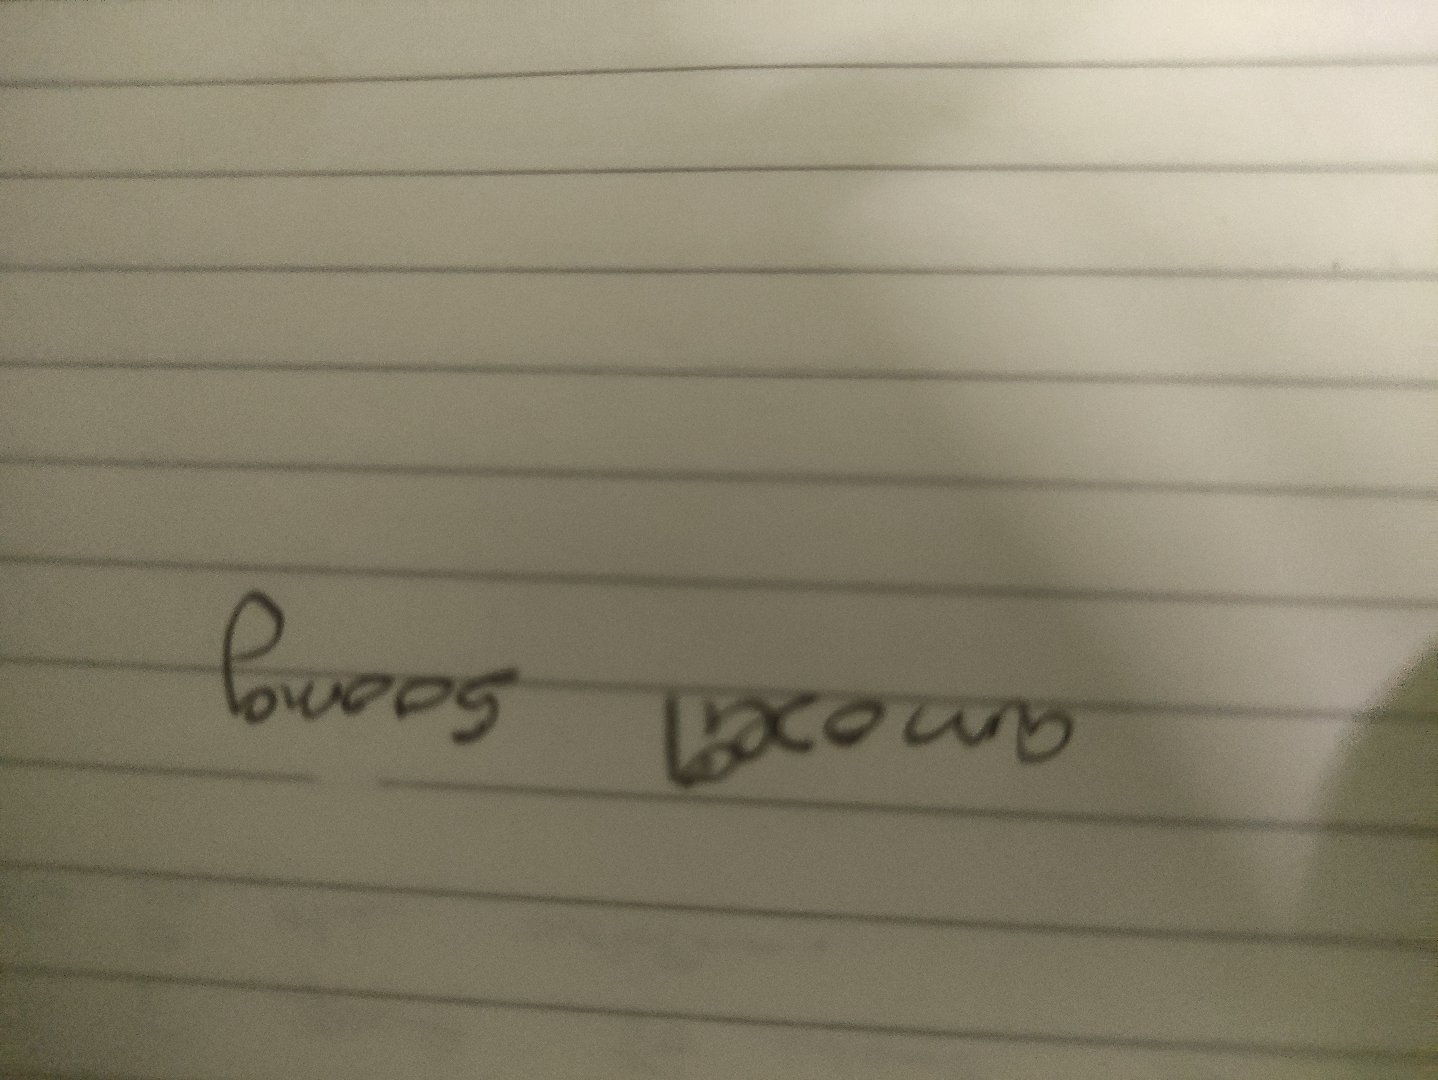 amoxil 500mg